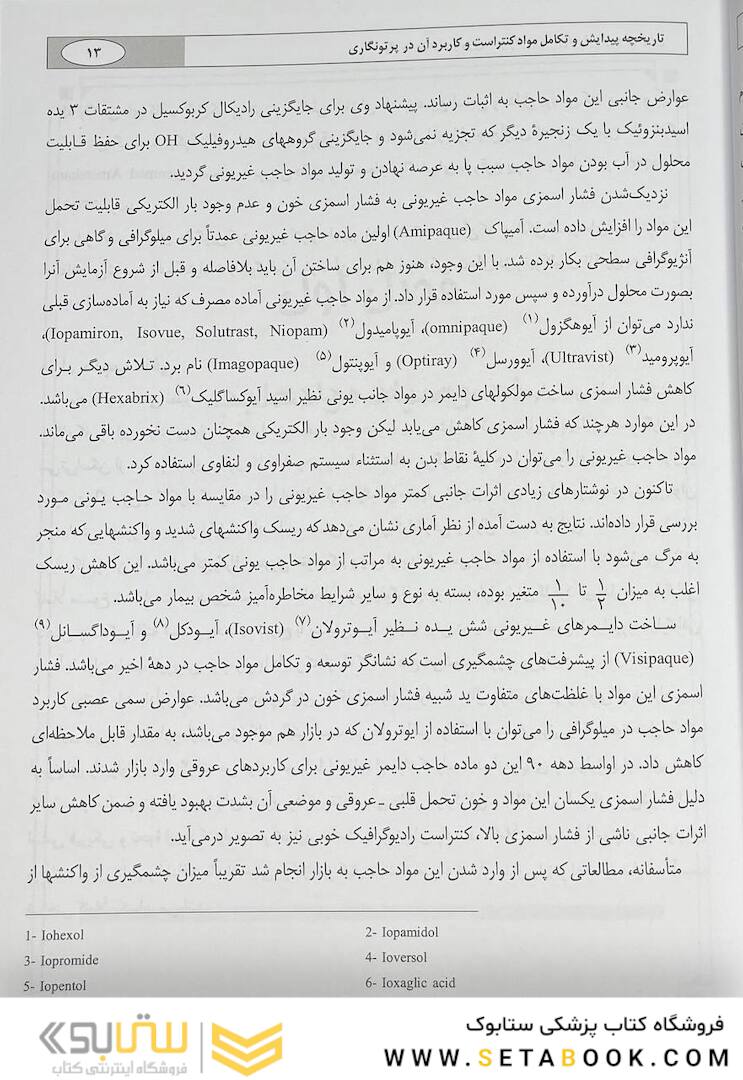 تاریخچه پیدایش و تکامل مواد کنتراست و کاربرد آن در پرتونگاری
۱۳
عوارض جانبی این مواد حاجب به اثبات رساند. پیشنهاد وی برای جایگزینی رادیکال کربوکسیل در مشتقات ۳ یده
اسیدبنزوئیک با یک زنجیرهٔ دیگر که تجزیه نمی‌شود و جایگزینی گروههای هیدروفیلیک OH برای حفظ قـابلیت
محلول در آب بودن مواد حاجب سبب پا به عرصه نهادن و تولید مواد حاجب غیریونی گردید.
نزدیک‌شدن فشار اسمزی مواد حاجب غیریونی به فشار اسمزی خون و عدم وجود بار الکتریکی قابلیت تحمل
این مواد را افزایش داده است. آمیپاک (Amipaque) اولین ماده حاجب غیریونی عمدتاً برای میلوگرافی و گاهی برای
آنژیوگرافی سطحی بکار برده شد. با این وجود، هنوز هم برای ساختن آن باید بلافاصله و قبل از شروع آزمایش آنرا
بصورت محلول درآورده و سپس مورد استفاده قرار داد. از مواد حاجب غیریونی آماده مصرف که نیاز به آماده‌سازی قبلی
ندارد می‌توان از آیوهگزول(۱) (omnipaque)، آیوپامیدول(۲) (Iopamiron, Isovue, Solutrast, Niopam)،
آیوپرومید(۳) (Ultravist)، آیوورسل(۴) (Optiray) و آیوپنتول(۵) (Imagopaque) نام برد. تـلاش دیگـر بـرای
کاهش فشار اسمزی ساخت مولکولهای دایمر در مواد جانب یونی نظیر اسید آیوکساگلیک(۶) (Hexabrix) می‌باشد.
در این موارد هرچند که فشار اسمزی کاهش می‌یابد لیکن وجود بار الکتریکی همچنان دست نخورده باقی می‌ماند.
مواد حاجب غیریونی را می‌توان در کلیهٔ نقاط بدن به استثناء سیستم صفراوی و لنفاوی استفاده کرد.
تاکنون در نوشتارهای زیادی اثرات جانبی کمتر مواد حاجب غیریونی را در مقایسه با مواد حـاجب یـونی مـورد
بررسی قرار داده‌اند. نتایج به دست آمده از نظر آماری نشان می‌دهد که ریسک واکنشهای شدید و واکنشهایی که منجر
به مرگ می‌شود با استفاده از مواد حاجب غیریونی به مراتب از مواد حاجب یونی کمتر می‌باشد. این کاهش ریسک
اغلب به میزان ۱/۲ تا ۱/۱۰ متغیر بوده، بسته به نوع و سایر شرایط مخاطره‌آمیز شخص بیمار می‌باشد.
سـاخت دایـمرهای غـیریونی شش یـده نـظیر آیـوترولان(۷) (Isovist)، آیـودکل(۸) و آیـوداگـسانل(۹)
(Visipaque) از پیشرفت‌های چشمگیری است که نشانگر توسعه و تکامل مواد حاجب در دههٔ اخیر می‌باشد. فشار
اسمزی این مواد با غلظت‌های متفاوت ید شبیه فشار اسمزی خون در گردش می‌باشد. عوارض سمی عصبی کاربرد
مواد حاجب در میلوگرافی را می‌توان با استفاده از ایوترولان که در بازار هم موجود می‌باشد، به مقدار قابل ملاحظه‌ای
کاهش داد. در اواسط دهه ۹۰ این دو ماده حاجب دایمر غیریونی برای کاربردهای عروقی وارد بازار شدند. اساساً به
دلیل فشار اسمزی یکسان این مواد و خون تحمل قلبی ـ عروقی و موضعی آن بشدت بهبود یافته و ضمن کاهش سایر
اثرات جانبی ناشی از فشار اسمزی بالا، کنتراست رادیوگرافیک خوبی نیز به تصویر درمی‌آید.
متأسفانه، مطالعاتی که پس از وارد شدن این مواد حاجب به بازار انجام شد تقریباً میزان چشمگیری از واکنشها از
1- Iohexol
2- Iopamidol
3- Iopromide
4- Ioversol
5- Iopentol
6- Ioxaglic acid
فروشگاه کتاب پزشکی ستابوک
WWW.SETABOOK.COM
ستابوک
فروشگاه اینترنتی کتاب